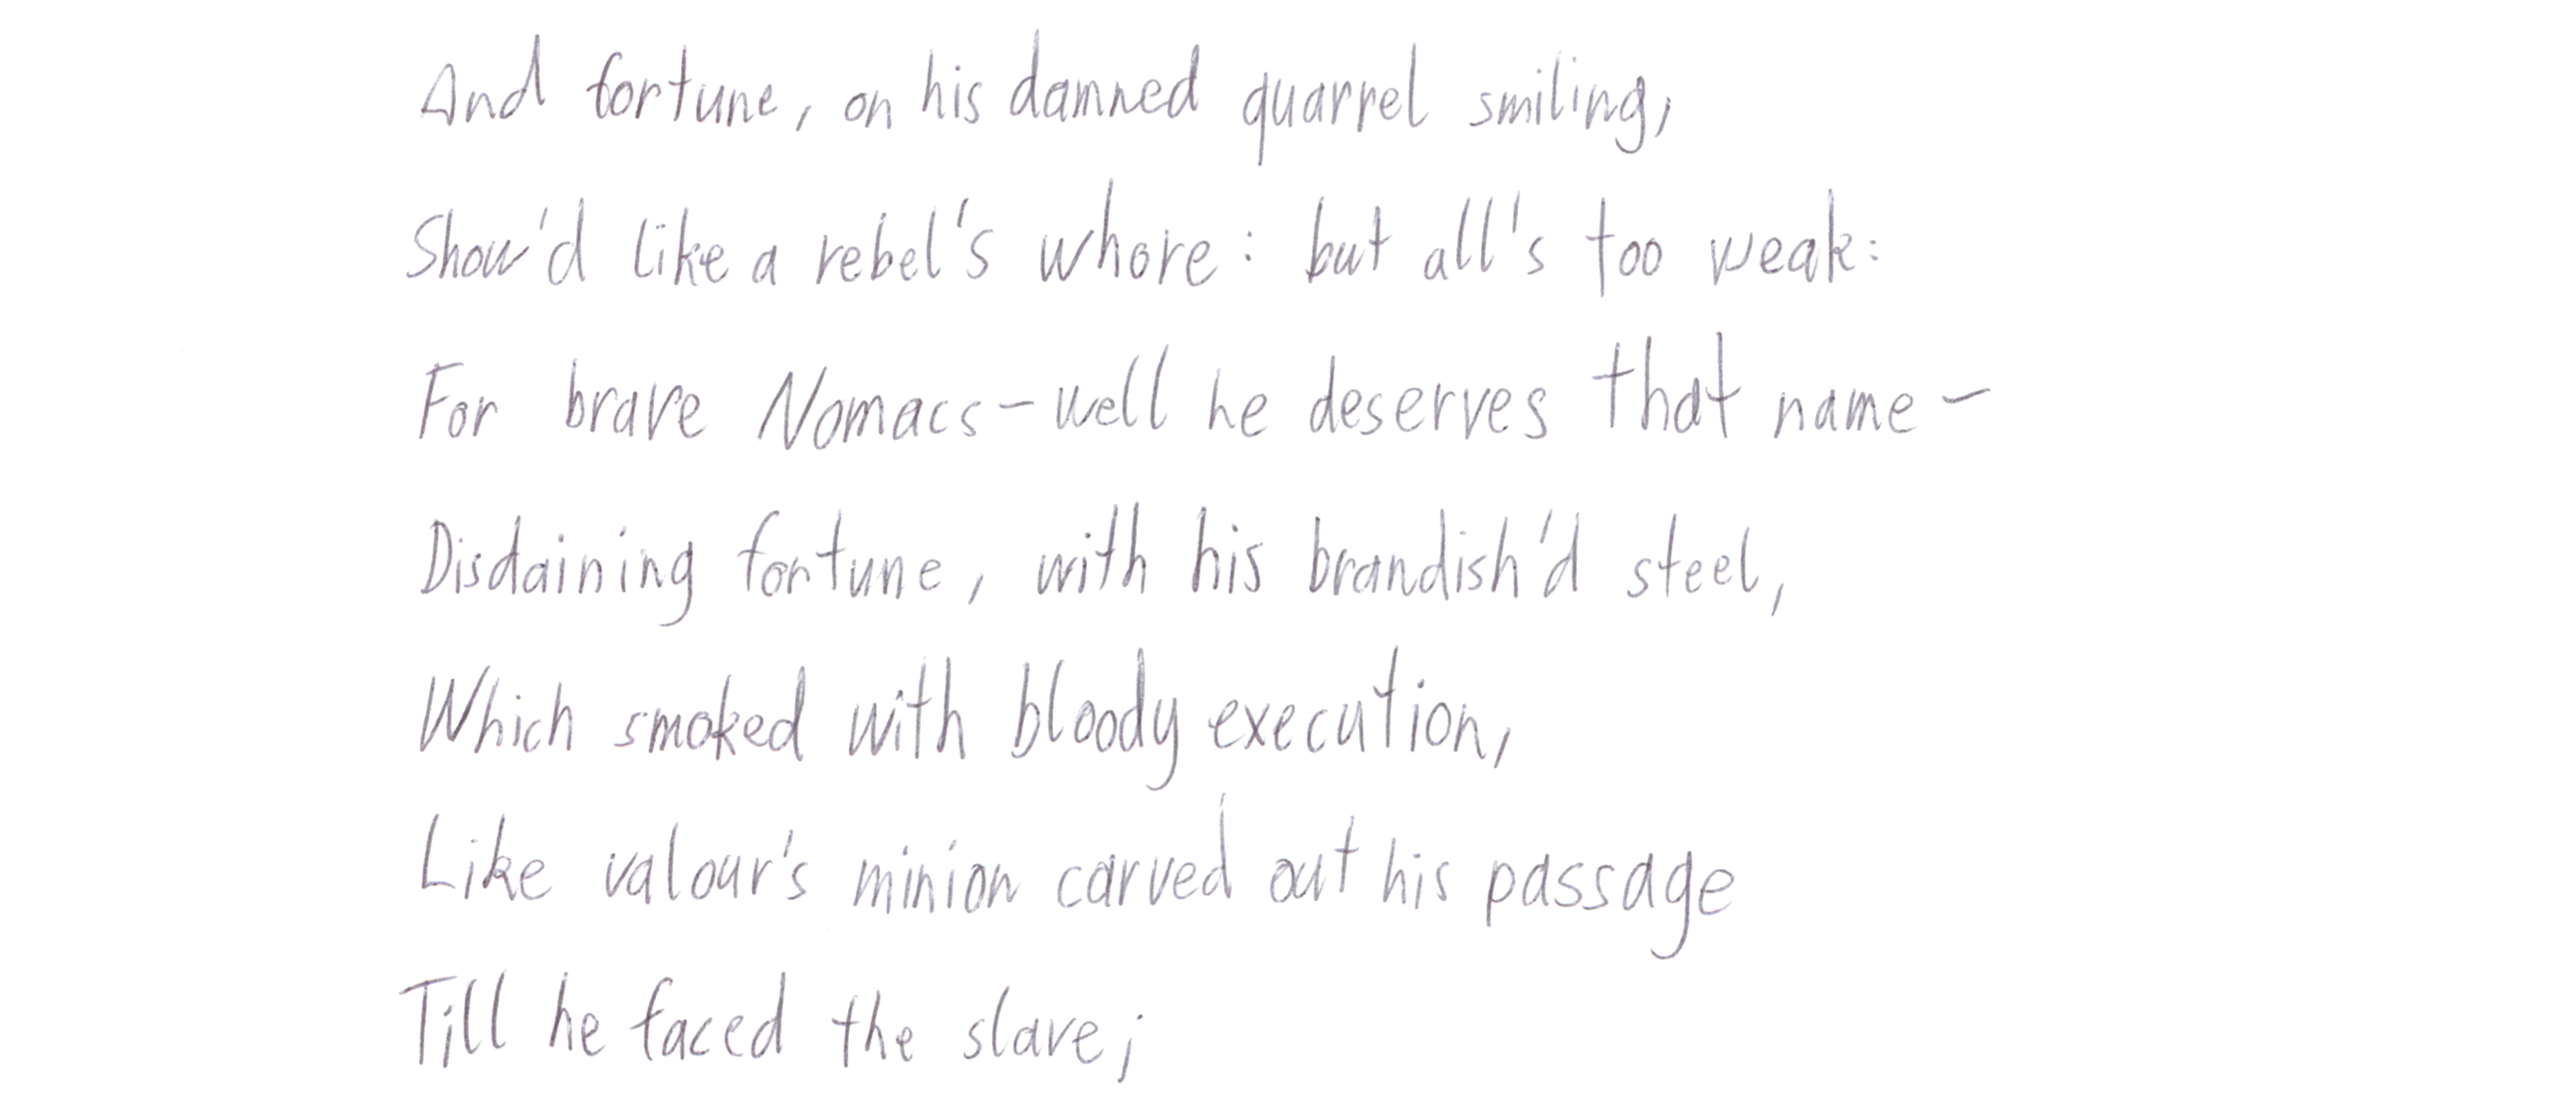 And fortune, on his damned quarrel smiling,
Show'd like a rebel's whore: but all's too weak:
For brave Nomacs-well he deserves that name-
Disdaining fortune, with his brandish'd steel,
Which smoked with bloody execution,
Like valour's minion carved out his passage
Till he faced the slave;